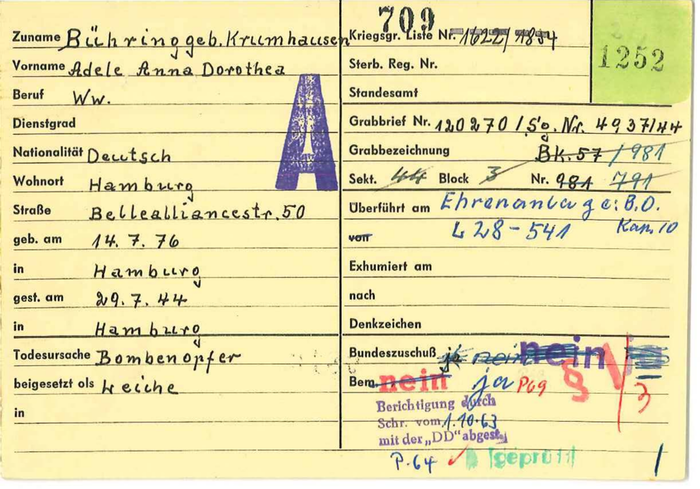 709
1252
Zuname Bühring geb. Krumhausen
Vorname Adele Anna Dorothea
Beruf Ww.
Dienstgrad
Nationalität Deutsch
Wohnort Hamburg
Straße Bellealliancestr. 50
geb. am 14. 7. 76
in Hamburg
gest. am 29. 7. 44
in Hamburg
Todesursache Bombenopfer
beigesetzt als Leiche
in
A
Kriegsgr. Liste Nr. 1622/1854
Sterb. Reg. Nr.
Standesamt
Grabbrief Nr. 120270 / So. Nr. 4937/44
Grabbezeichnung Bk. 57 / 981
Sekt. 44 Block 3 Nr. 981 791
Überführt am Ehrenanlage: B.O.
von L 28-541 Kam. 10
Exhumiert am
nach
Denkzeichen
Bundeszuschuß ja nein nein
Bem. nein ja P69 § V 3
Berichtigung durch
Schr. vom 1.10.63
mit der „DD" abgest.
P.64 geprüft